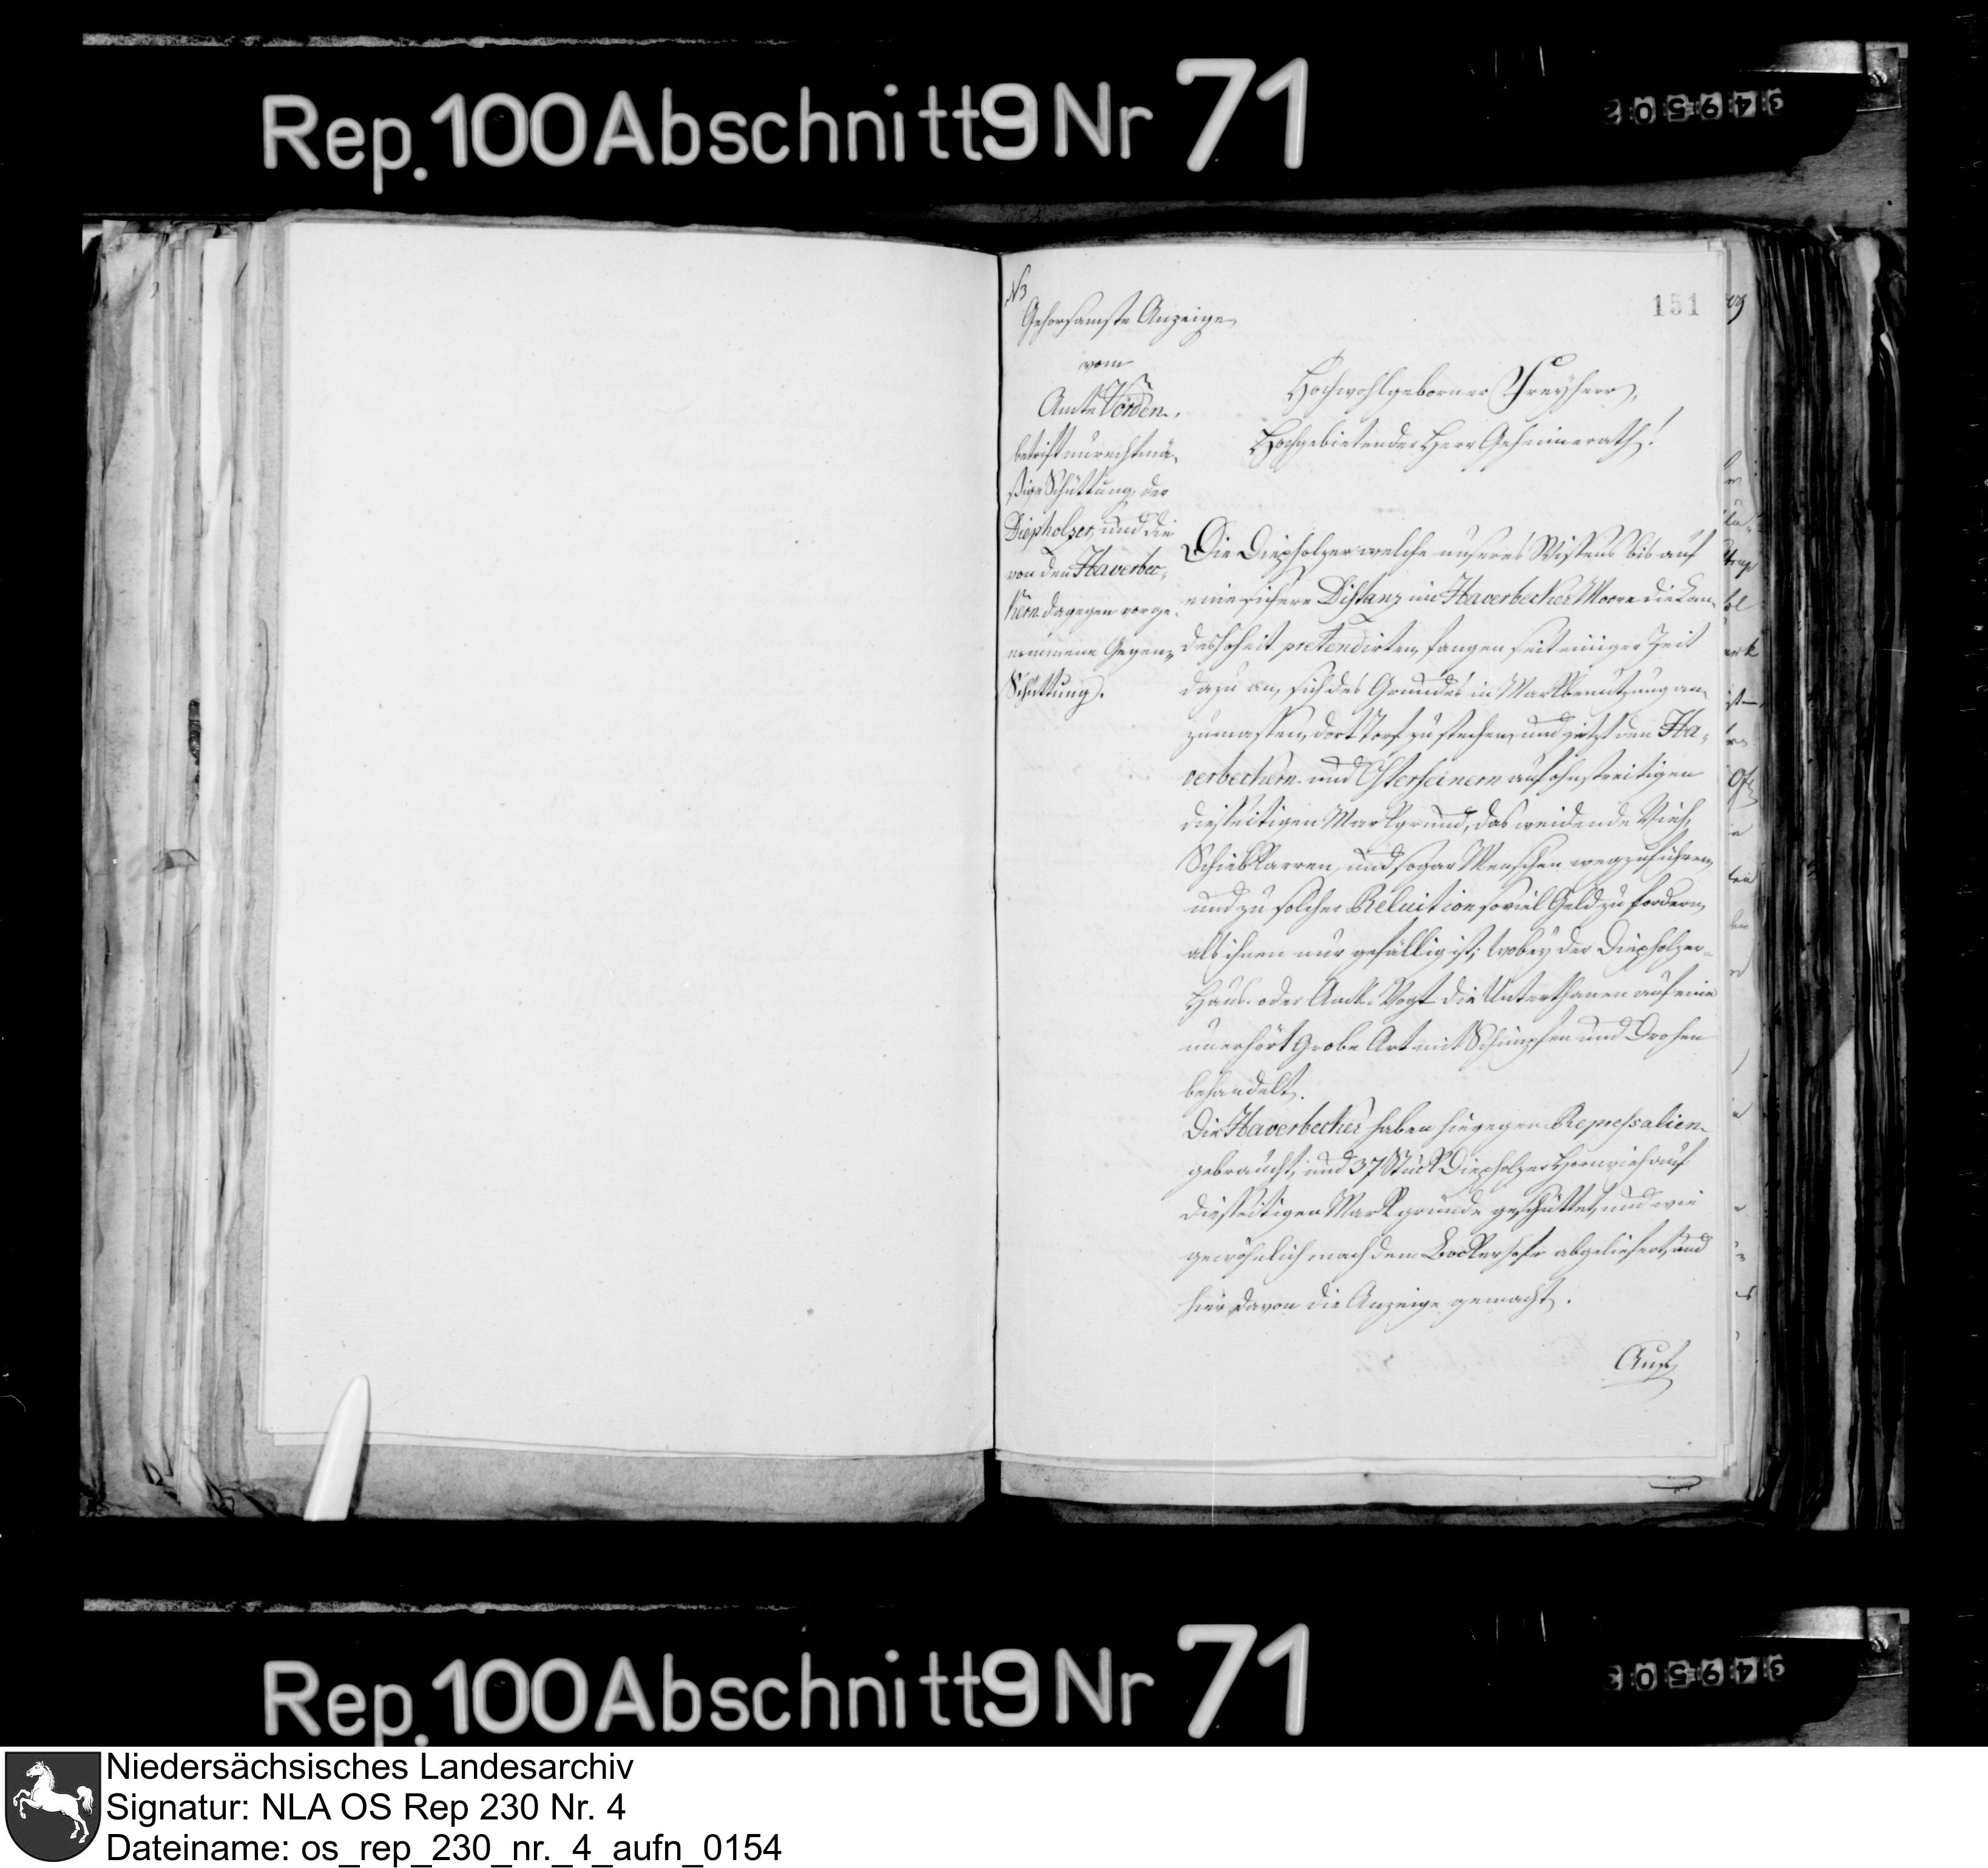 Rep. 100 Abschnitt 9 Nr 71
349502
151
N3
Gehorsamste Anzeige
vom
Amte Vörden.
betrift unrechtmä-
ßige Schüttung der
Diepholzer, und die
von den Haverbec-
kern dagegen vorge-
nommene Gegen-
Schüttung.
Hochwohlgeborner Freyherr,
Hochgebietender Herr Geheimerath!
Die Diepholzer welche unseres Wissens bis auf
eine sichere Distanz im Haverbecker Moore die Lan-
deshoheit pretendirten, fangen seit einiger Zeit
dazu an, sich des Grundes in Markbenutzung an-
zumassen, dort Torf zu stechen, und jetzt den Ha-
verbeckern und Osterfeinern auf ohnstreitigen
diesseitigen Markgrund, das weidende Vieh,
Schiebkarren, und sogar Menschen wegzuführen,
und zu solcher Reluition soviel Geld zu fordern,
als ihnen nur gefällig ist; wobey der Diepholzer-
Haus- oder Amts-Vogt die Unterthanen auf eine
unerhört grobe Art mit Schimpfen und Drohen
behandelt.
Die Haverbecker haben hingegen Repressalien
gebraucht, und 37 Stück Diepholzer Hornvieh auf
diesseitigen Markgrunde geschüttet, und wie
gewöhnlich nach dem abgeliefert, und
hier davon die Anzeige gemacht.
Auf
Rep. 100 Abschnitt 9 Nr 71
349502
Niedersächsisches Landesarchiv
Signatur: NLA OS Rep 230 Nr. 4
Dateiname: os_rep_230_nr._4_aufn_0154